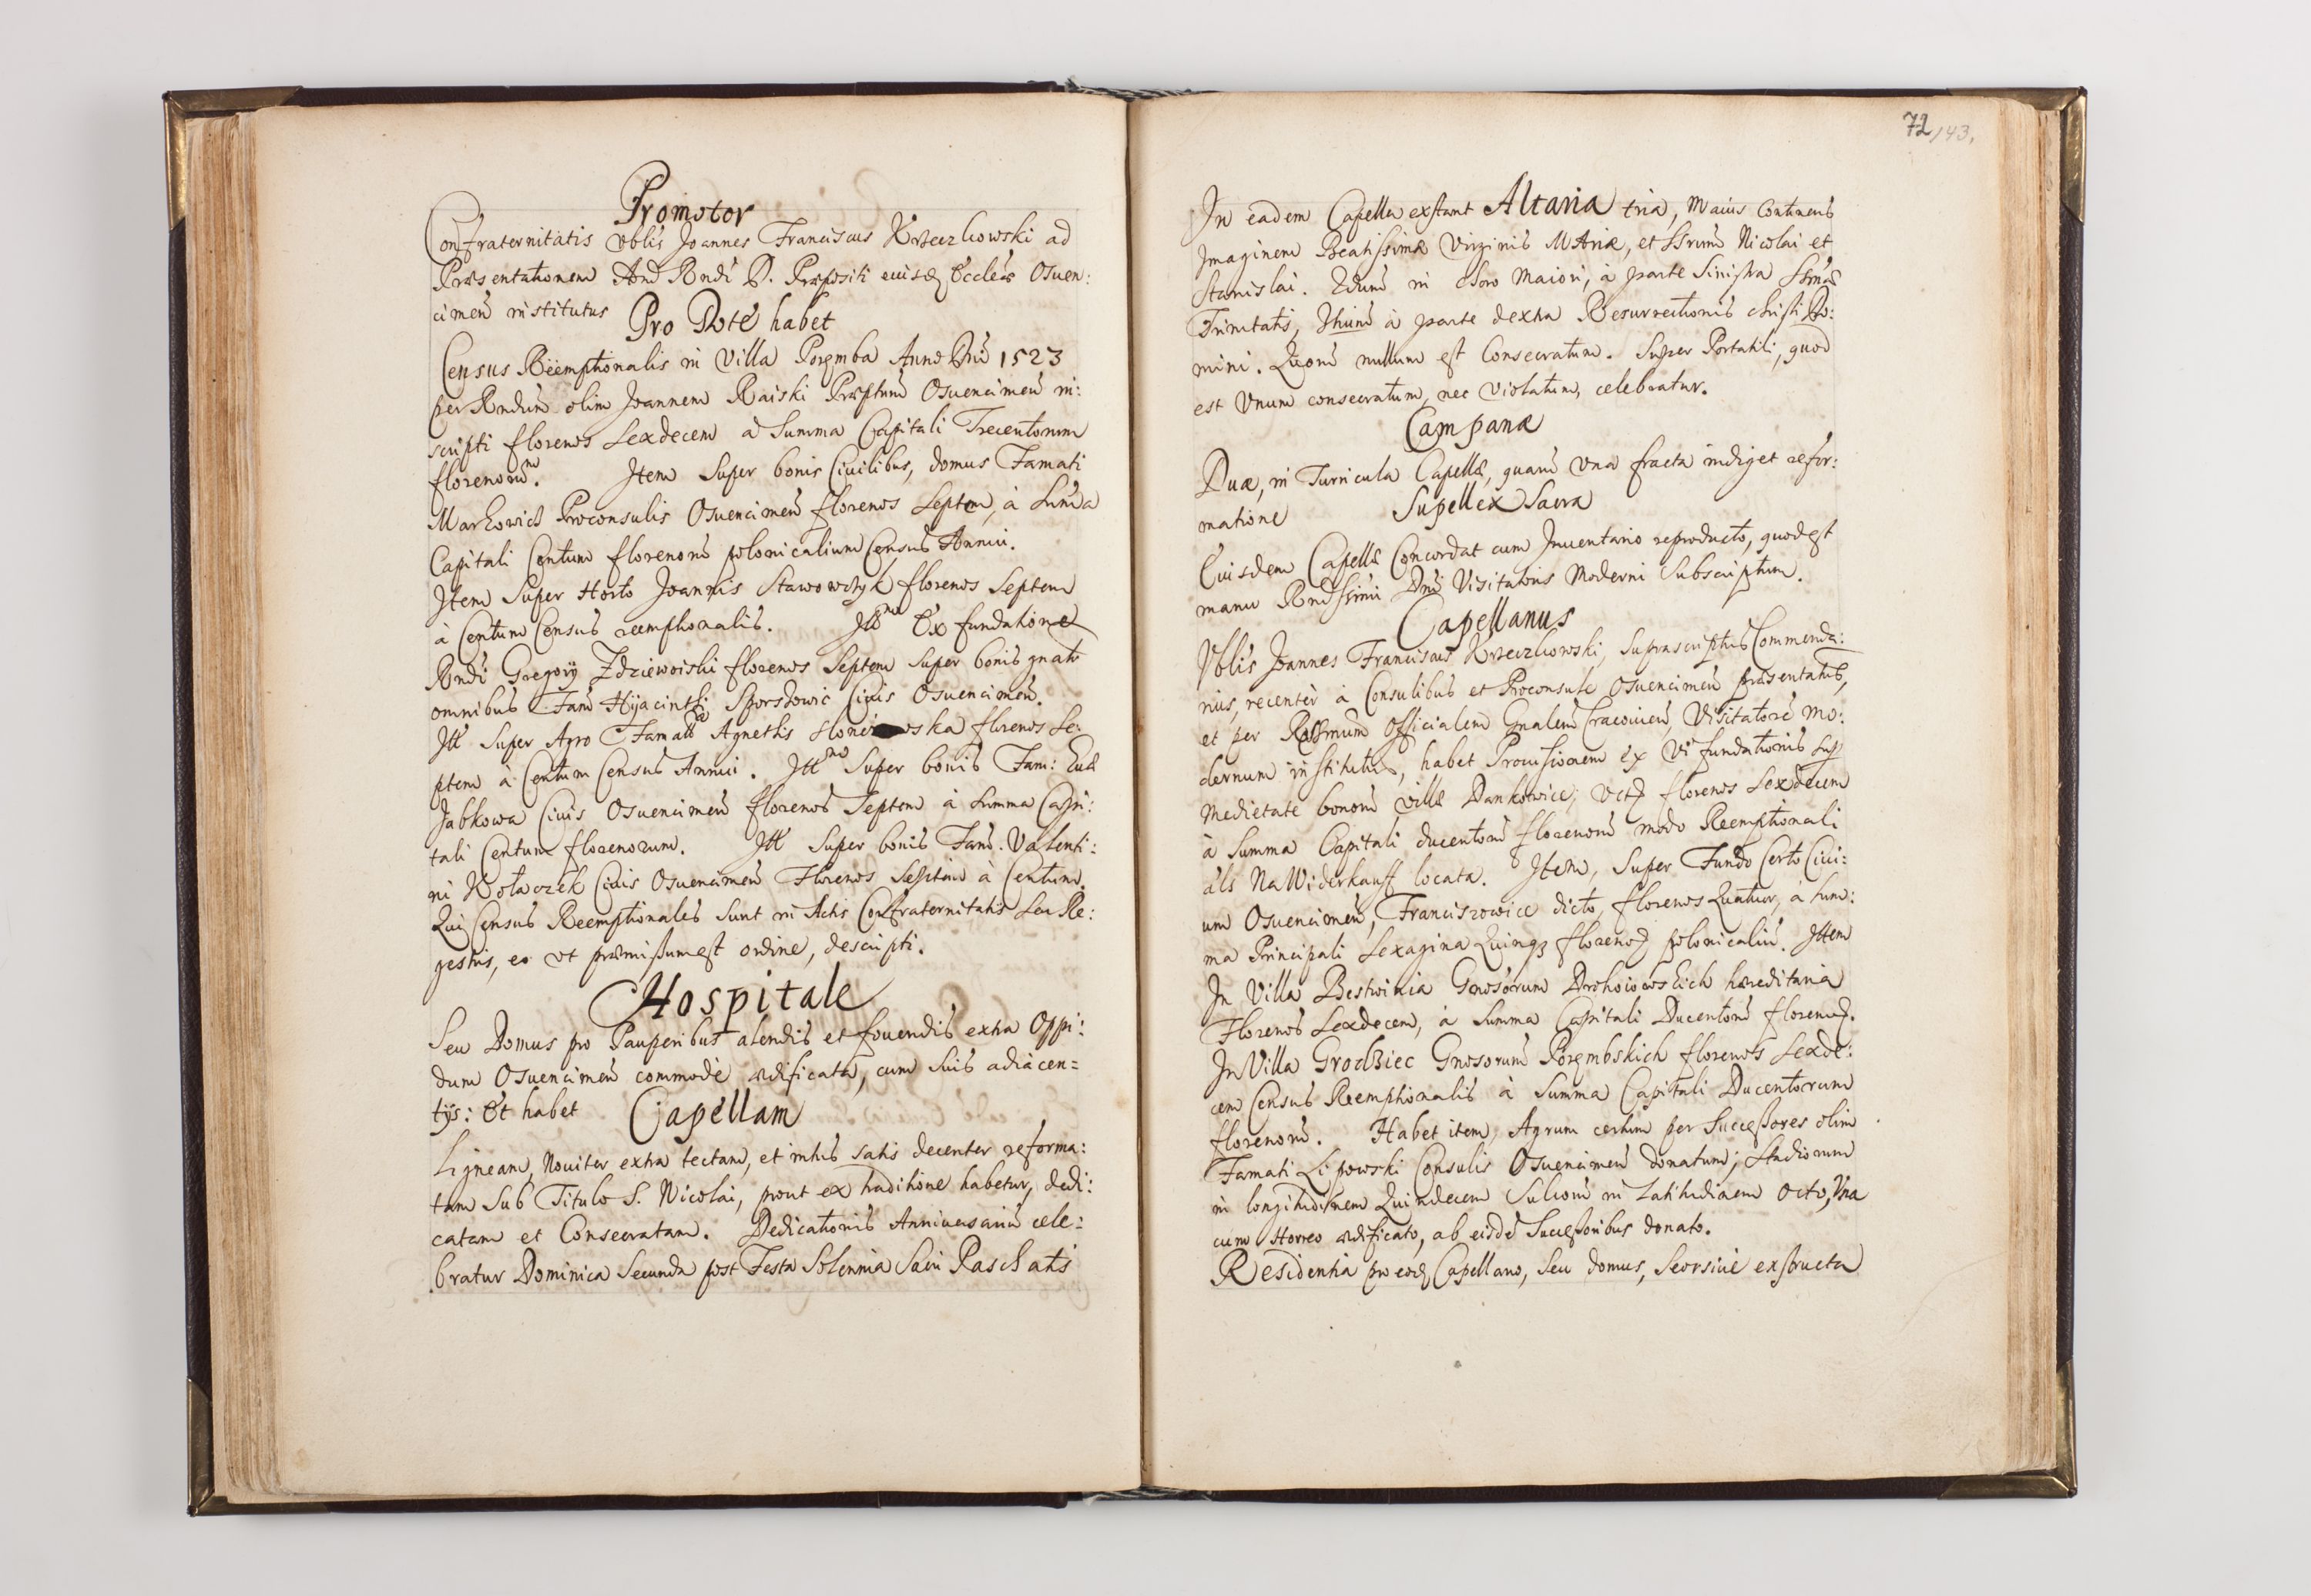 Promotor
Confraternitatis Vblis Joannes Franciscus Krzeczkowski ad
Præsentationem Adm̄ Rndi D. Præpositi eiusdē Eccleæ Osuen:
cimen̄ institutus Pro Dote habet
Census Reemptionalis in Villa Poręmba Anno Dn̄i 1523
per Rndum olim Joannem Raiski Præptum Osuencimen̄ in:
scripti florenos Sexdecem a Summa Capitali Trecentorum
florenorū. Item Super bonis Ciuilibus, domus Famati
Markowicz Proconsulis Osuencimen̄ florenos Septem, à Sum̄a
Capitali Centum florenorū polonicalium Census Annui.
Item Super Horto Joannis Stawowczyk florenos Septem
à Centum Census reemptionalis. Itt Ex fundatione
Rndi Gregorij Zdziewoiski florenos Septem super bonis gnatr
omnibus Fam̄ Hijacinthi Ciuis Osuencimen̄.
Itt Super Agro Famatæ Agnethis florenos Se:
ptem à Centum Census Annui. Itt Super bonis Fam: Euæ
Jabkowa Ciuis Osuencimen̄ florenos Septem à Summa Capi:
tali Centum florenorum. Itt Super bonis Fam̄. Valenti:
ni Kołaczek Ciuis Osuencimen̄ Florenos Septem à Centum.
Qui Census Reemptionales sunt in Actis Confraternitatis Seu Re:
gestris, eo vt præmißum est ordine, descripti.
Hospitale
Seu Domus pro Pauperibus alendis et fouendis extra Oppi:
dum Osuencimen̄ commodè ædificata, cum suis adiacen=
tijs: Et habet Capellam
Ligneam, Nouiter extra tectam, et intus satis decenter reforma:
tam Sub Titulo S. Nicolai, prout ex traditione habetur, dedi:
catam et Consecratam. Dedicationis Anniuersariū cele=
bratur Dominica Secunda post Festa Solennia Sacri Paschatis
72 143.
In eadem Capella exstant Altaria tria, Maius Continens
Imaginem Beatissimæ Virginis MAriæ, et SSrum Nicolai et
Stanislai. 2dum in Choro Maiori, à parte Sinistra SSmæ
Trinitatis, 3tium à parte dextra Resurrectionis Christi Do:
mini. Quorū nullum est Consecratum. Super Portatili, quod
est Vnum consecratum, nec violatum, celebratur.
Campanæ
Duæ, in Turricula Capellæ, quarū vna fracta indiget refor:
matione Supellex Sacra
Eiusdem Capellæ Concordat cum Inuentario reproducto, quod est
manu Rndssimi Dn̄i Visitatoris Moderni Subscriptum.
Capellanus
Vblis Joannes Franciscus Krzeczkowski, suprascriptus Commenda:
rius, recenter à Consulibus et Proconsule Osuencimen̄ præsentatus,
et per Officialem Gnalem Cracouien̄, Visitatorē mo:
dernum institutus, habet Prouisionem ex vi fundationis sup
Medietate bonorū villæ Dankowice, florenos Sexdecem
à Summa Capitali ducentorū florenorū modo Reemptionali
als Na Widerkauff locata. Item, Super Fundo Certo Ciui:
um Osuencimen̄, Franciszowice dicto, florenos Quatuor, à Sum:
ma Principali Sexaginta Quinqȝ florenoȝ polonicaliū. Item
In Villa Bestwinia Gnosorum Drohoiowskich hæreditaria
Florenos Sexdecem, à Summa Capitali Ducentorū florenoȝ.
In Villa Grodziec Gnosorum Porembskich florenos Sexde:
cem Census Reemptionalis à Summa Capitali Ducentorum
florenorū. Habet item, Agrum certum per Succeßores olim
Famati Lipowski Consulis Osuencimen̄ donatum; Stadiorum
in longitudinem Quindecem Sulcorū in Latitudinem octo, Vna
cum Horreo ædificato, ab eisdē Succeßoribus donato.
Residentia pro eodē Capellano, Seu domus, Seorsiuè exstructa